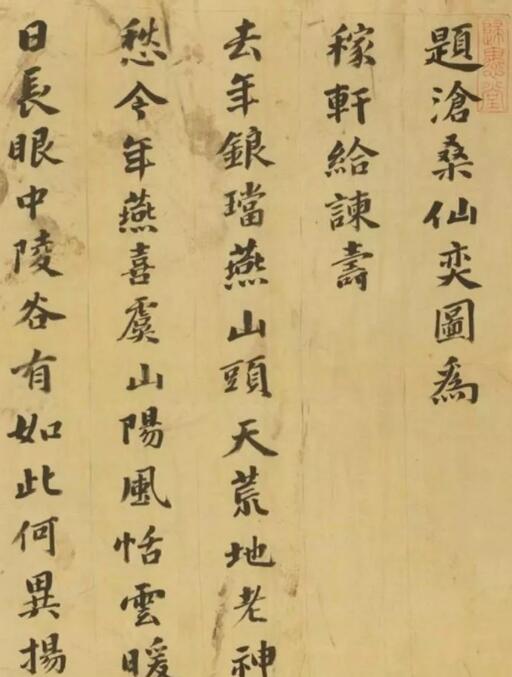 題滄桑仙奕圖為
稼軒給諫壽
去年鋃璫燕山頭天荒地老神
愁今年燕喜虞山陽風恬雲暖
日長眼中陵谷有如此何異揚